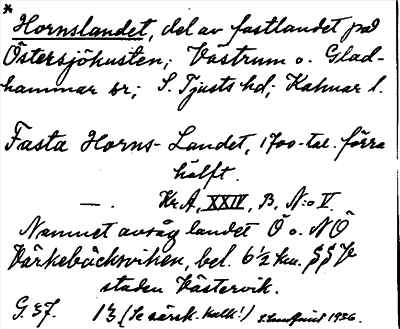 * Hornslandet, del av fastlandet på
Östersjökusten; Västrum o. Glad-
hammar sr; S. Tjusts hd; Kalmar l.
Fasta Horns-Landet, 1700-tal. förra
hälft.
—. Kr.A, XXIV, B, N:o V.
Namnet avsåg landet Ö o. NÖ
Värkebäcksviken, bel. 6½ km. SSV
staden Västervik.
G. 37. 13 (Se särsk. kalk!) 1936.